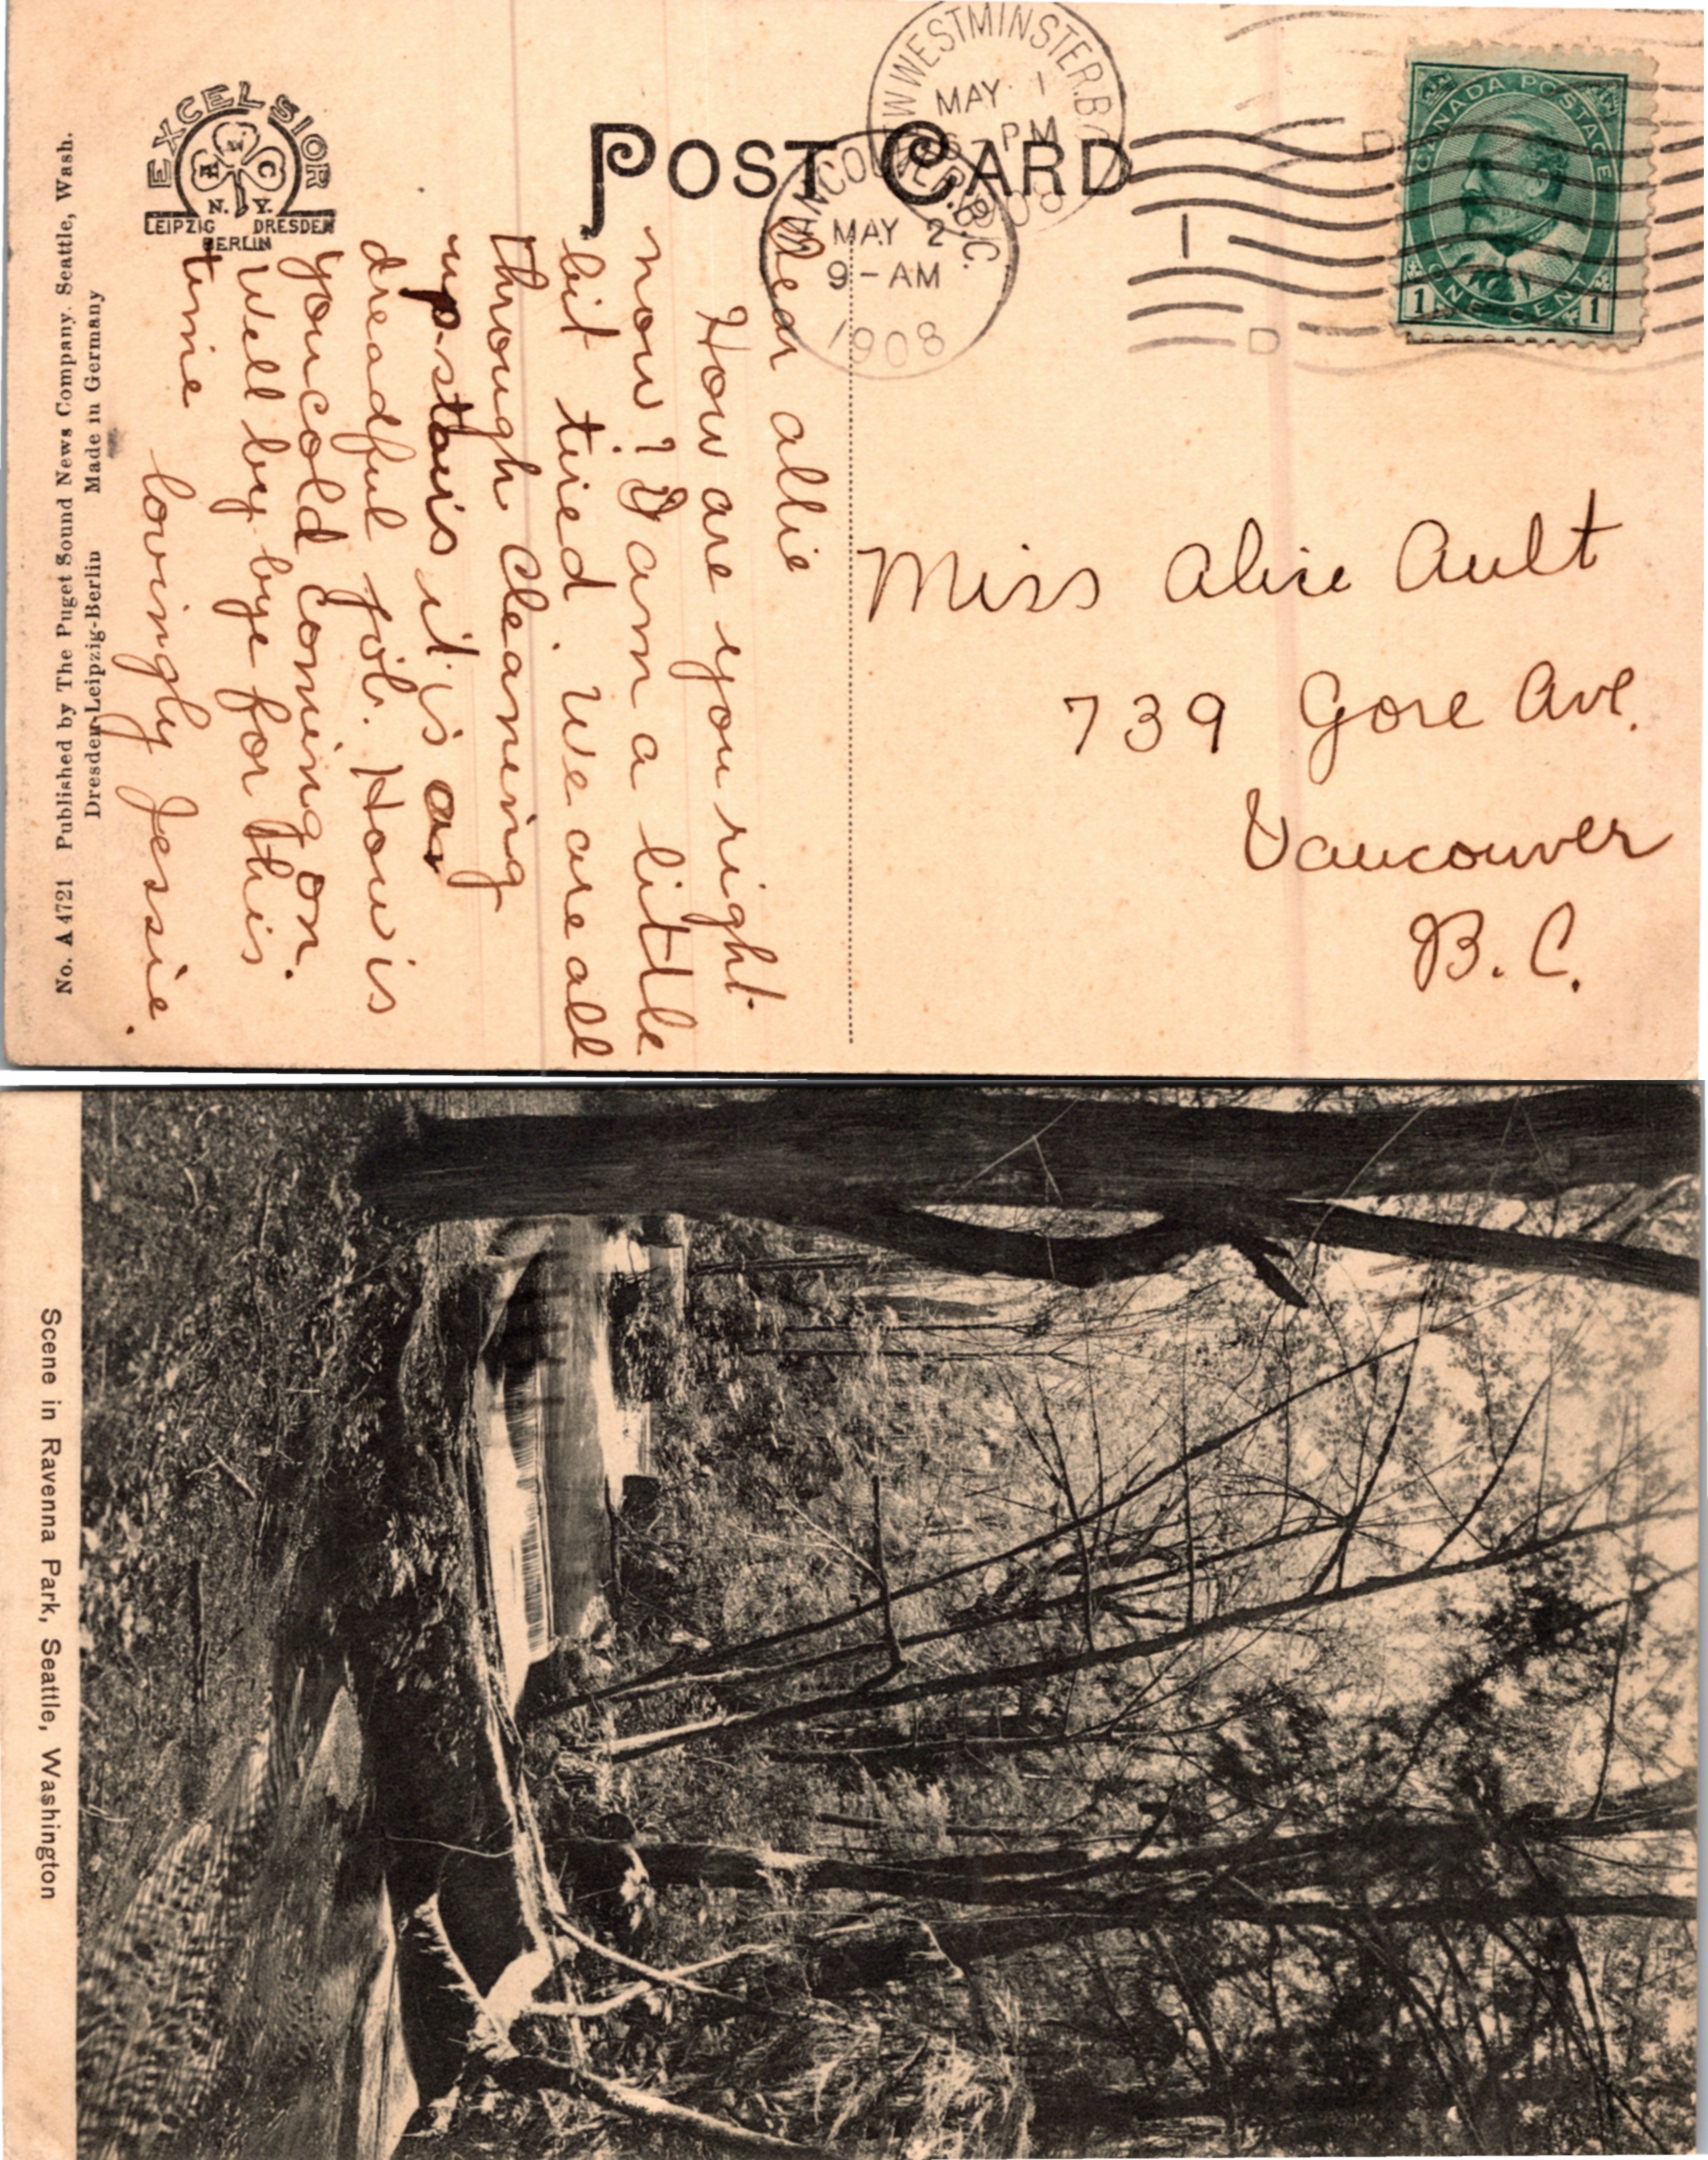 EXCELSIOR
A N C
N. Y.
LEIPZIG DRESDEN
BERLIN
POST CARD
WESTMINSTER.B.
MAY 1
PM
08
B.C.
MAY 2
9-AM
1908
CANADA POSTAGE
ONE CENT
1 1
Dear allie
How are you right
now? I am a little
bit tired. We are all
through cleaning
up-stairs it is a
dreadful job. How is
your cold coming on.
Well by bye for this
time
lovingly Jessie.
Miss Alice Ault
739 Gore Ave.
Vancouver
B. C.
No. A 4721 Published by The Puget Sound News Company. Seattle, Wash.
Dresden-Leipzig-Berlin Made in Germany
Scene in Ravenna Park, Seattle, Washington